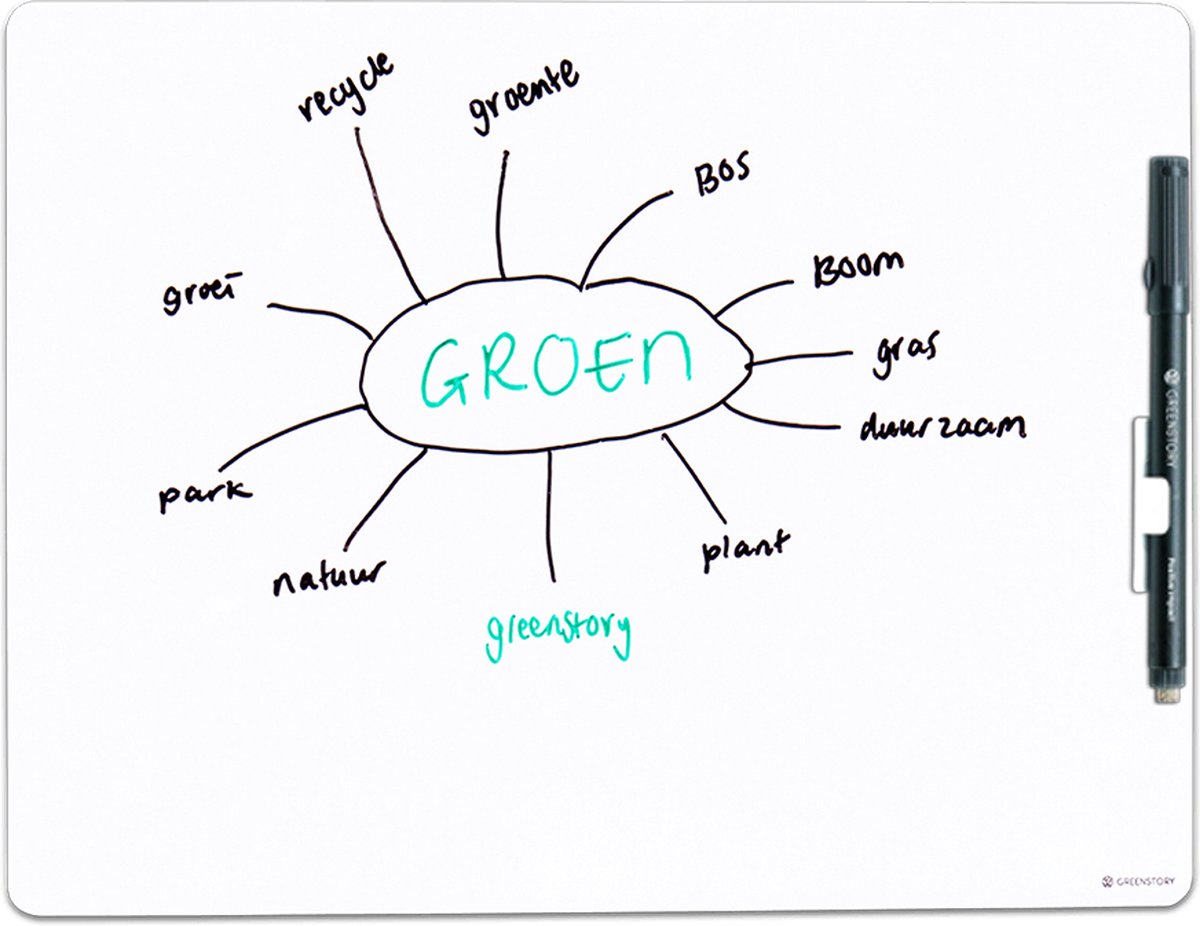 recycle
groente
Bos
Boom
groei
GROEN
gras
duurzaam
park
plant
natuur
greenstory
GREENSTORY
GREENSTORY